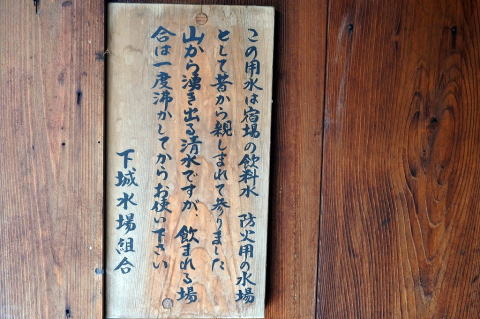 この用水は宿場の飲料水 防火用の水場
として昔から親しまれて参りました
山から湧き出る清水ですが、飲まれる場
合は一度沸かしてからお使い下さい
下城水場組合